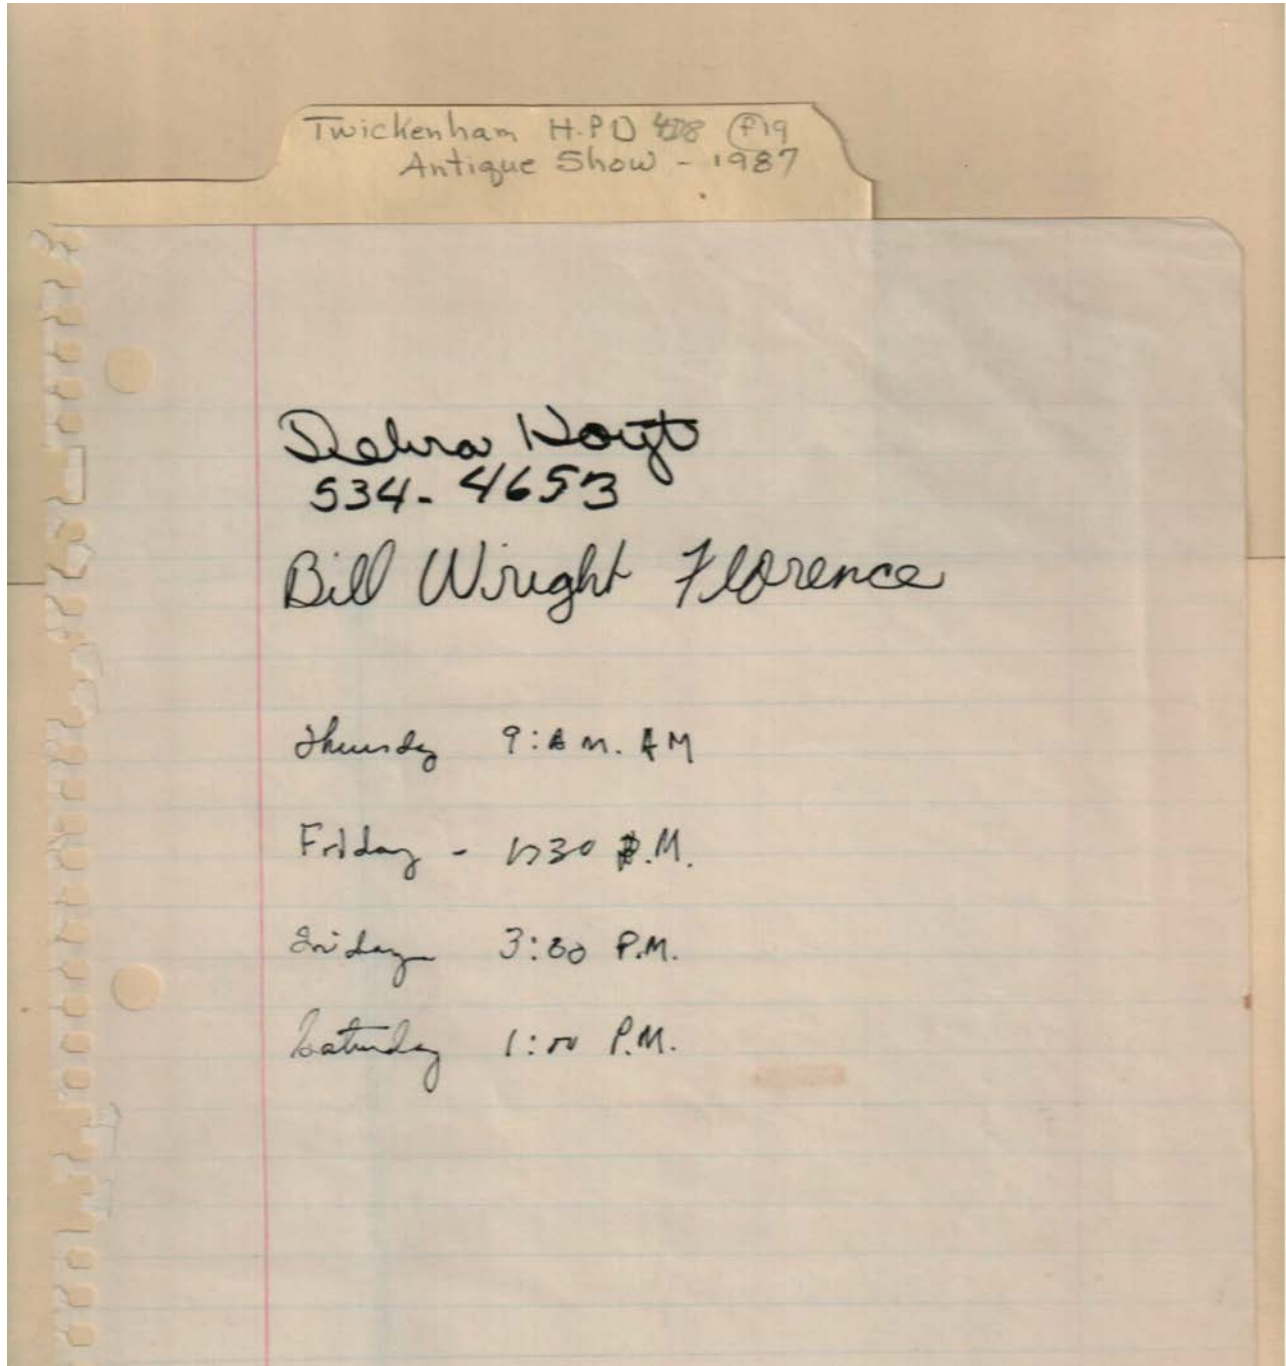 Twickenham H.P.D f19
Antique Show - 1987
Debra Hoyt
534-4653
Bill Wright Florence
Thursday 9: A M. AM
Friday - 1:30 P.M.
Friday 3:00 P.M.
Saturday 1:00 P.M.